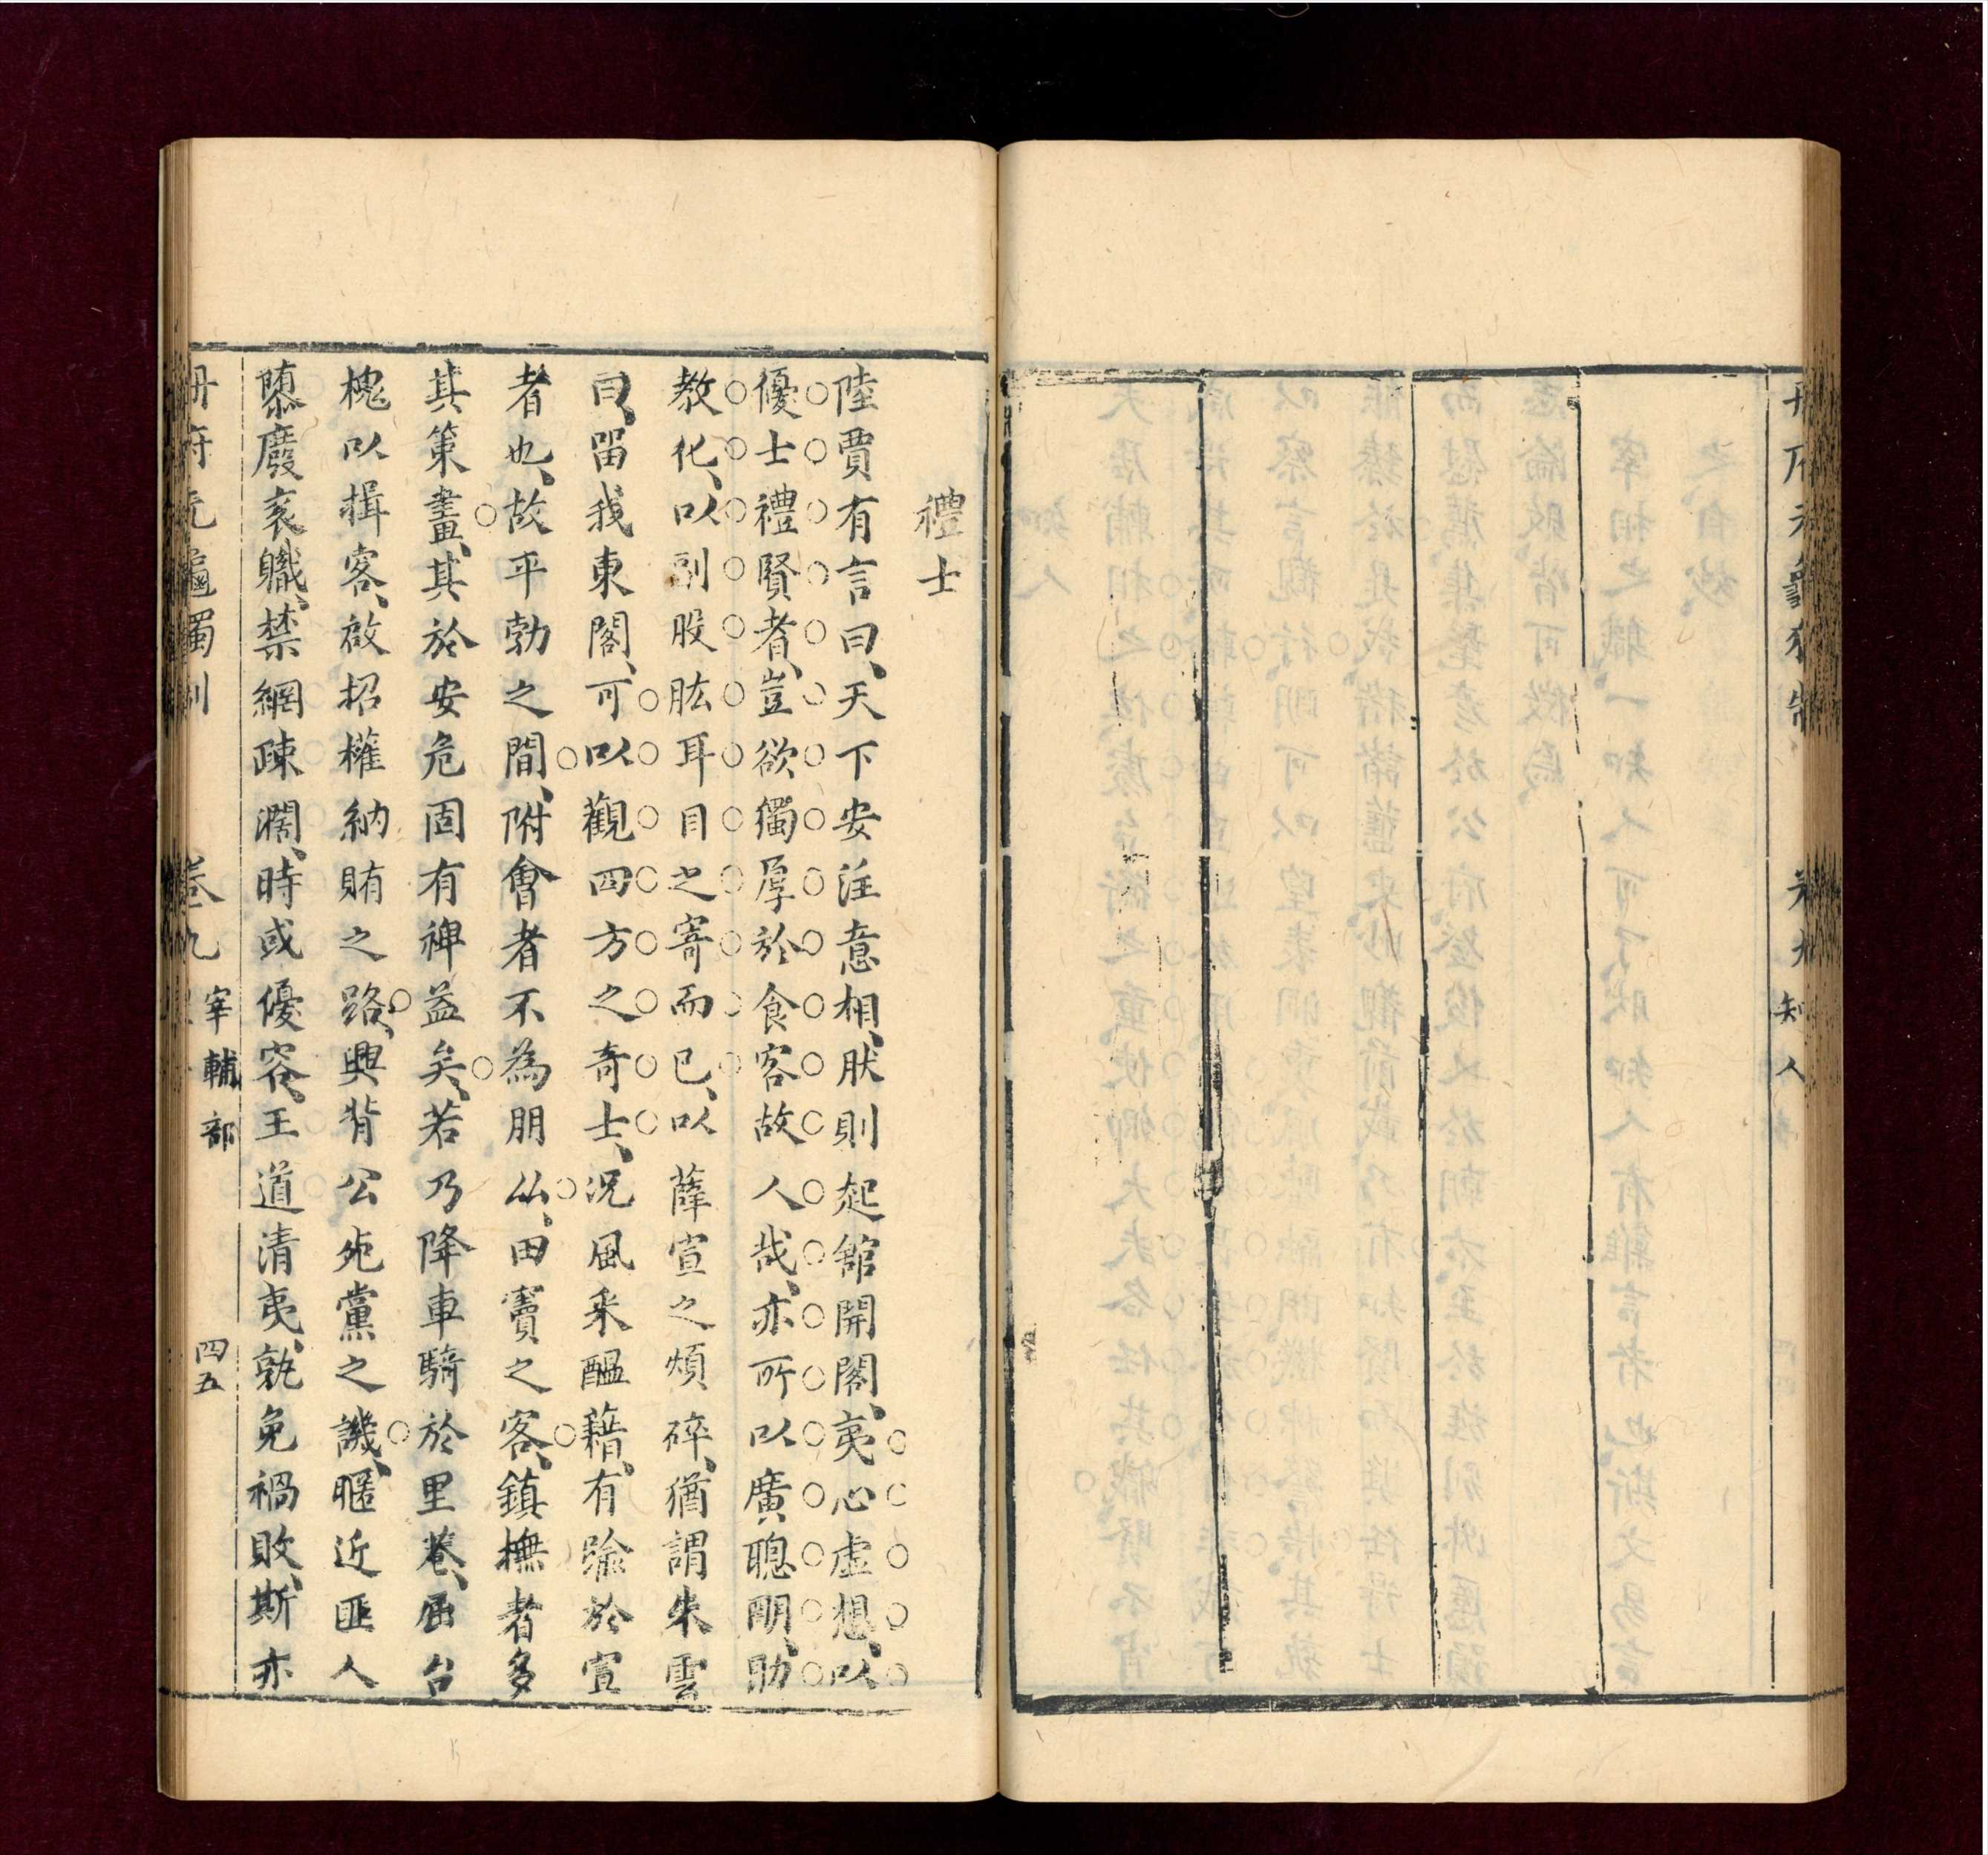 知人
禮士
陸賈有言曰、天下安注意相、肰則起舘開閣、夷心虛想、以
優士禮賢者、豈欲獨厚於食客故人哉、亦所以廣聰明、助
教化、以副股肱耳目之寄而已、以薛宣之煩碎、猶謂朱雲
曰、留我東閣、可以觀四方之奇士、况風采醞藉、有踰於宣
者也、故平勃之間、附會者不為朋、田竇之客、鎮撫者多
其策畫、其於安危固有裨益矣、若乃降車騎於里巷、屈台
槐以揖客、啟招權納賄之路、興背公死黨之譏、暱近匪人
隳廢衮職、禁網疎濶、時或優容、王道清夷、孰免禍敗、斯亦
卷九 宰輔部 四五